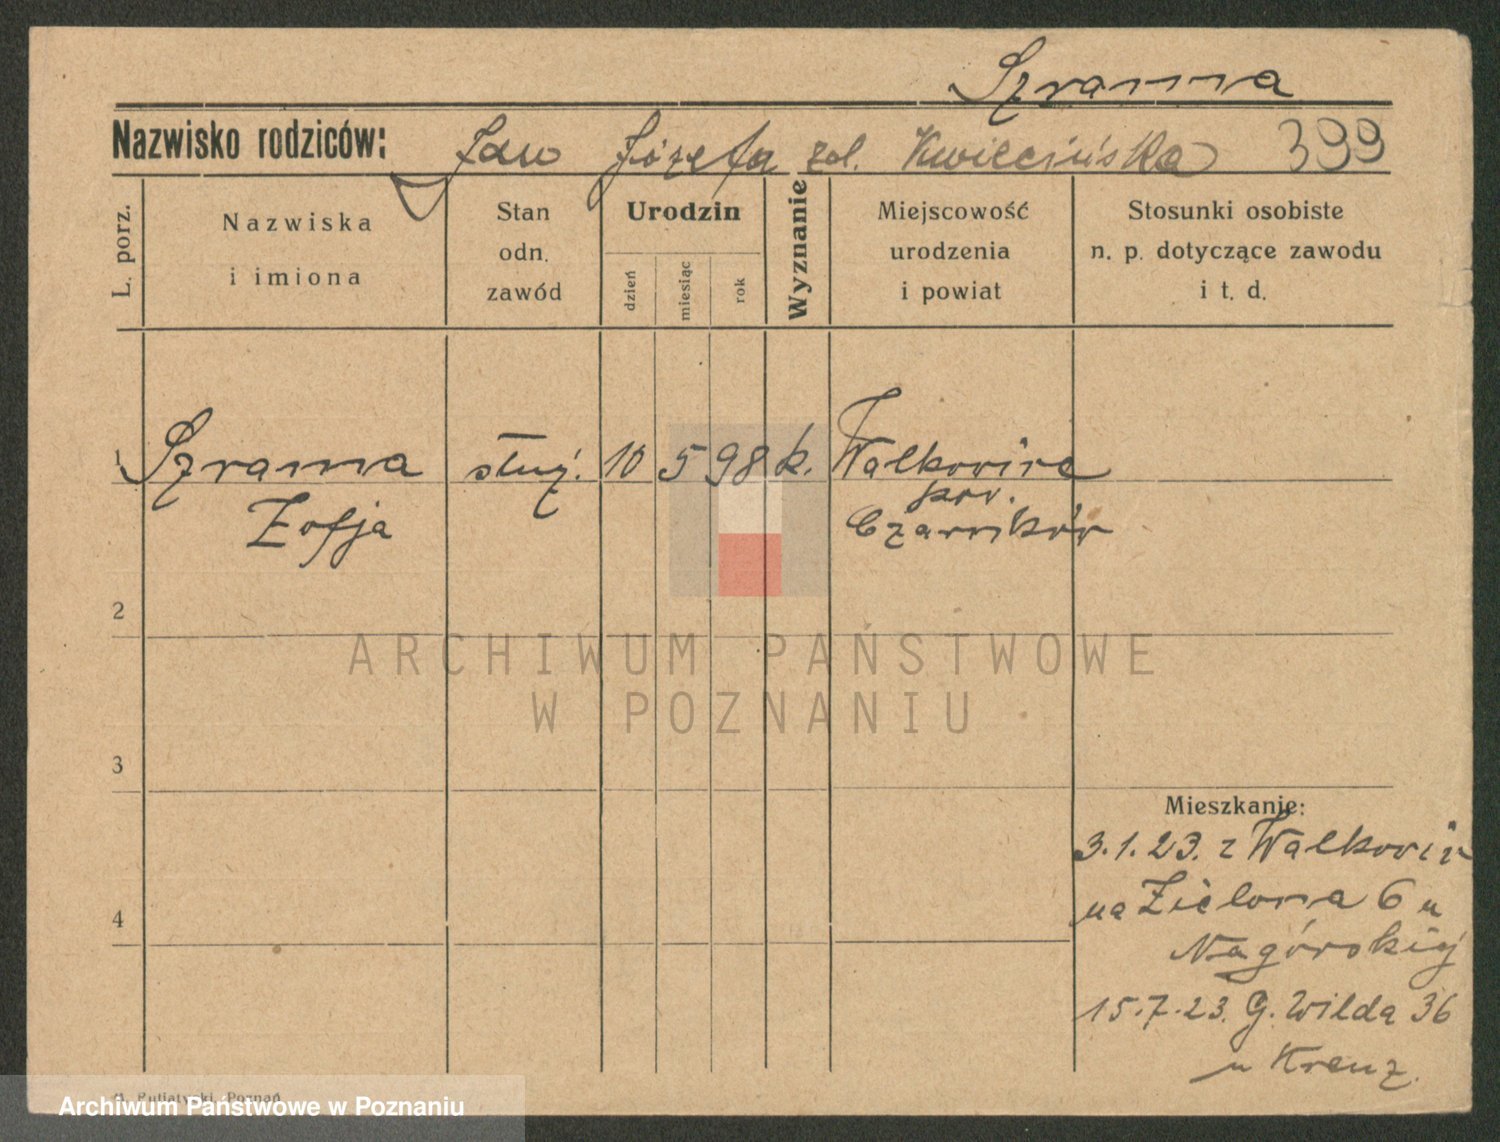 Szranna
Nazwisko rodziców: Jan Józefa zd. Kwiecińska 399
L. porz.
Nazwiska
i imiona
Stan
odn.
zawód
Urodzin
dzień
miesiąc
rok
Wyznanie
Miejscowość
urodzenia
i powiat
Stosunki osobiste
n. p. dotyczące zawodu
i t. d.
1 Szranna służ. 10 5 98 k. Walkowice
pow.
Zofja Czarnków
2
ARCHIWUM PAŃSTWOWE
W POZNANIU
3
Mieszkanie:
3.1.23. z Walkowic
na Zielona 6 u
4
Nagórskiej
15.7.23. G. Wilda 36
u Kreuz.
Putiatycki, Poznań
Archiwum Państwowe w Poznaniu